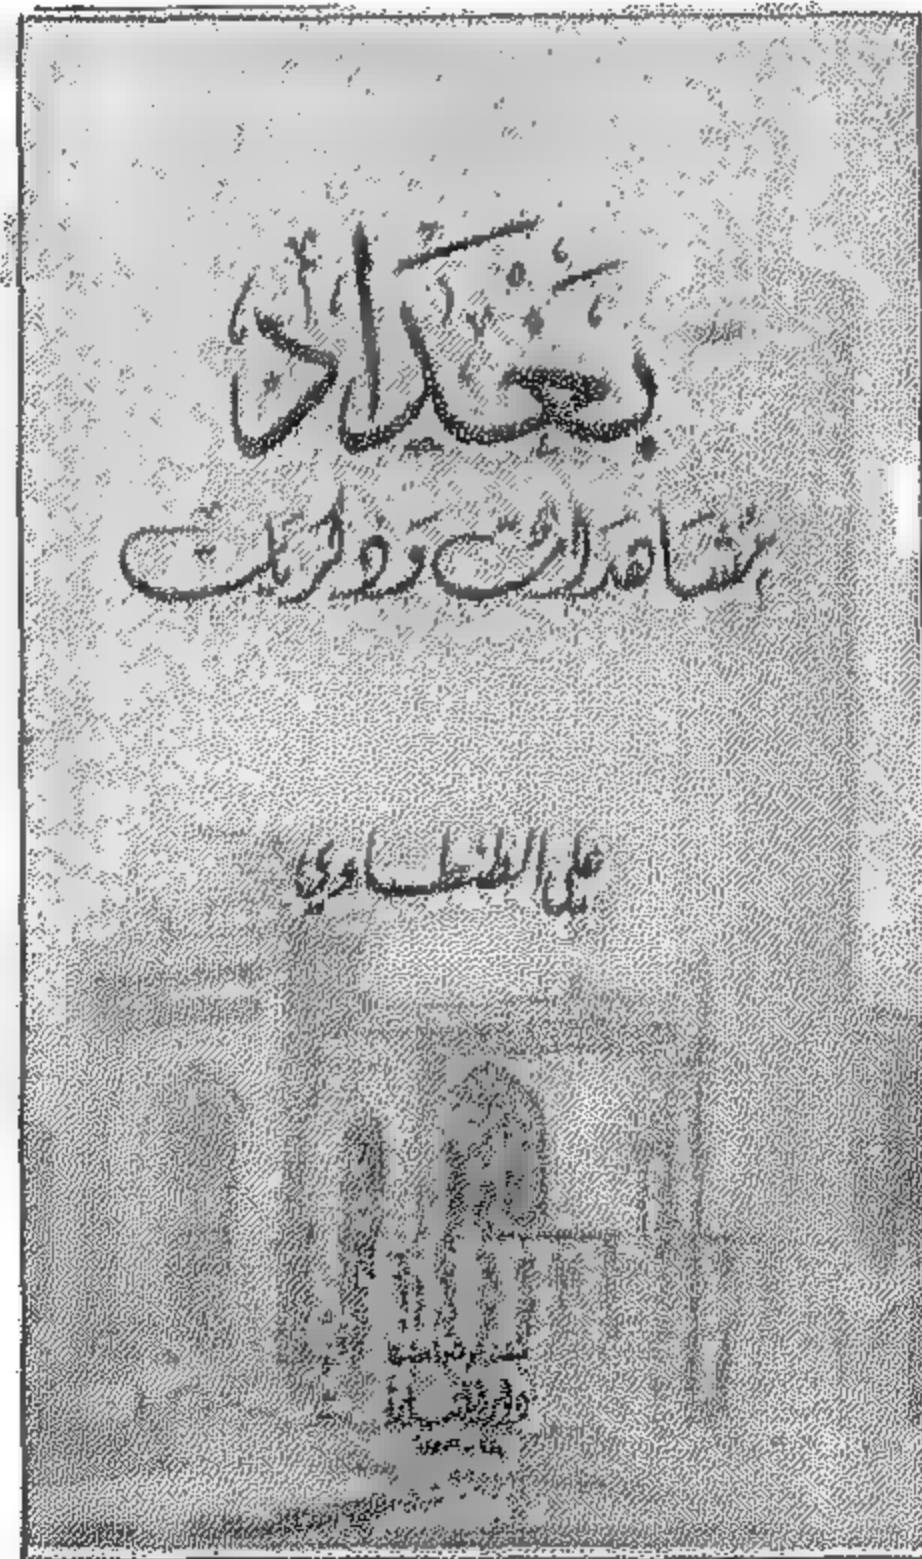 بَغْدَاد
مشاهدات وذكريات
علي الطنطاوي